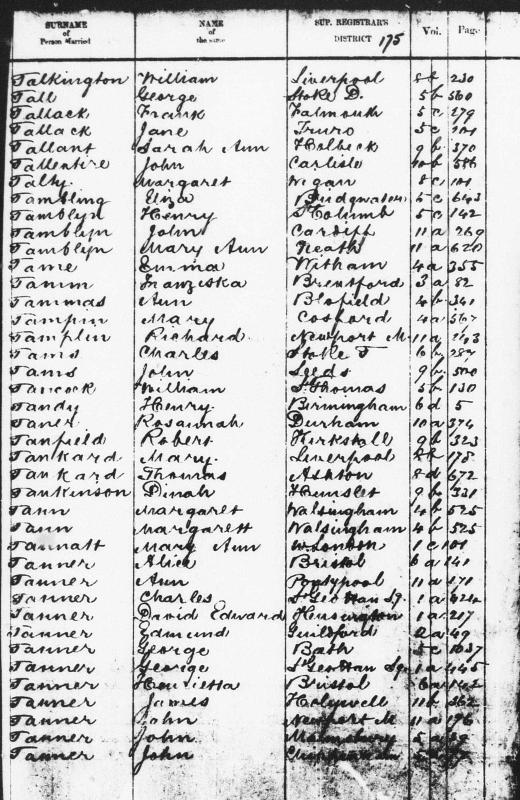 SURNAME of Person Married NAME of the same SUP. REGISTRAR'S DISTRICT 175 Vol. Page
Talkington William Liverpool 8b 230
Tall George Stoke D. 5b 560
Tallack Frank Falmouth 5c 279
Tallack Jane Truro 5c 101
Tallant Sarah Ann Holbeck 9b 370
Tallentire John Carlisle 10b 586
Talty Margaret Wigan 8c 101
Tambling Eliza Bridgwater 5c 643
Tamblyn Henry St Columb 5c 142
Tamblyn John Cardiff 11a 269
Tamblyn Mary Ann Neath 11a 620
Tame Emma Witham 4a 355
Tamm Franziska Brentford 3a 82
Tammas Ann Blofield 4b 341
Tampin Mary Cosford 4a 567
Tamplin Richard Newport M. 11a 243
Tams Charles Stoke T 6b 287
Tams John Leeds 9b 500
Tancock William St Thomas 5b 130
Tandy Henry Birmingham 6d 5
Taner Rosannah Durham 10a 374
Tanfield Robert Kirkstall 9b 323
Tankard Mary Liverpool 8b 178
Tankard Thomas Ashton 8d 672
Tankinson Dinah Hunslet 9b 321
Tann Margaret Walsingham 4b 525
Tann Margarett Walsingham 4b 525
Tannatt Mary Ann W. London 1c 101
Tanner Alice Bristol 6a 141
Tanner Ann Pontypool 11a 171
Tanner Charles St Geo Han Sq. 1a 424
Tanner David Edward Kensington 1a 217
Tanner Edmund Guildford 2a 49
Tanner George Bath 5c 1037
Tanner George St Geo Han Sq. 1a 445
Tanner Henrietta Bristol 6a 142
Tanner James Holywell 11b 362
Tanner John Newport M 11a 196
Tanner John Malmesbury 5a
Tanner John Chippenham